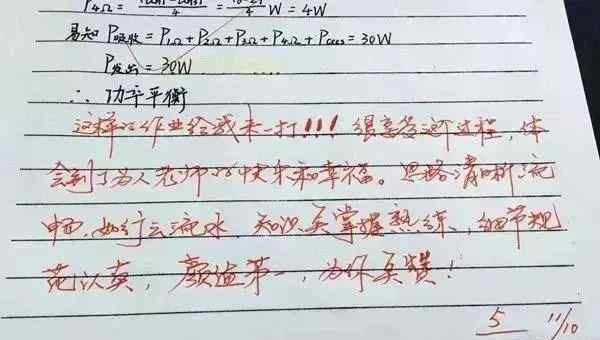 P4Ω = /4 = /4 W = 4W
易知 P吸收 = P1Ω + P2Ω + P3Ω + P4Ω + Pcccs = 30W
P发出 = 30W
∴ 功率平衡
这样的作业给我来一打!!! 很享受这个过程,体
会到了为人老师的快乐和幸福。思路清晰流
畅,如行云流水,知识点掌握熟练,细节规
范认真,颜值第一,为你点赞!
5 11/10